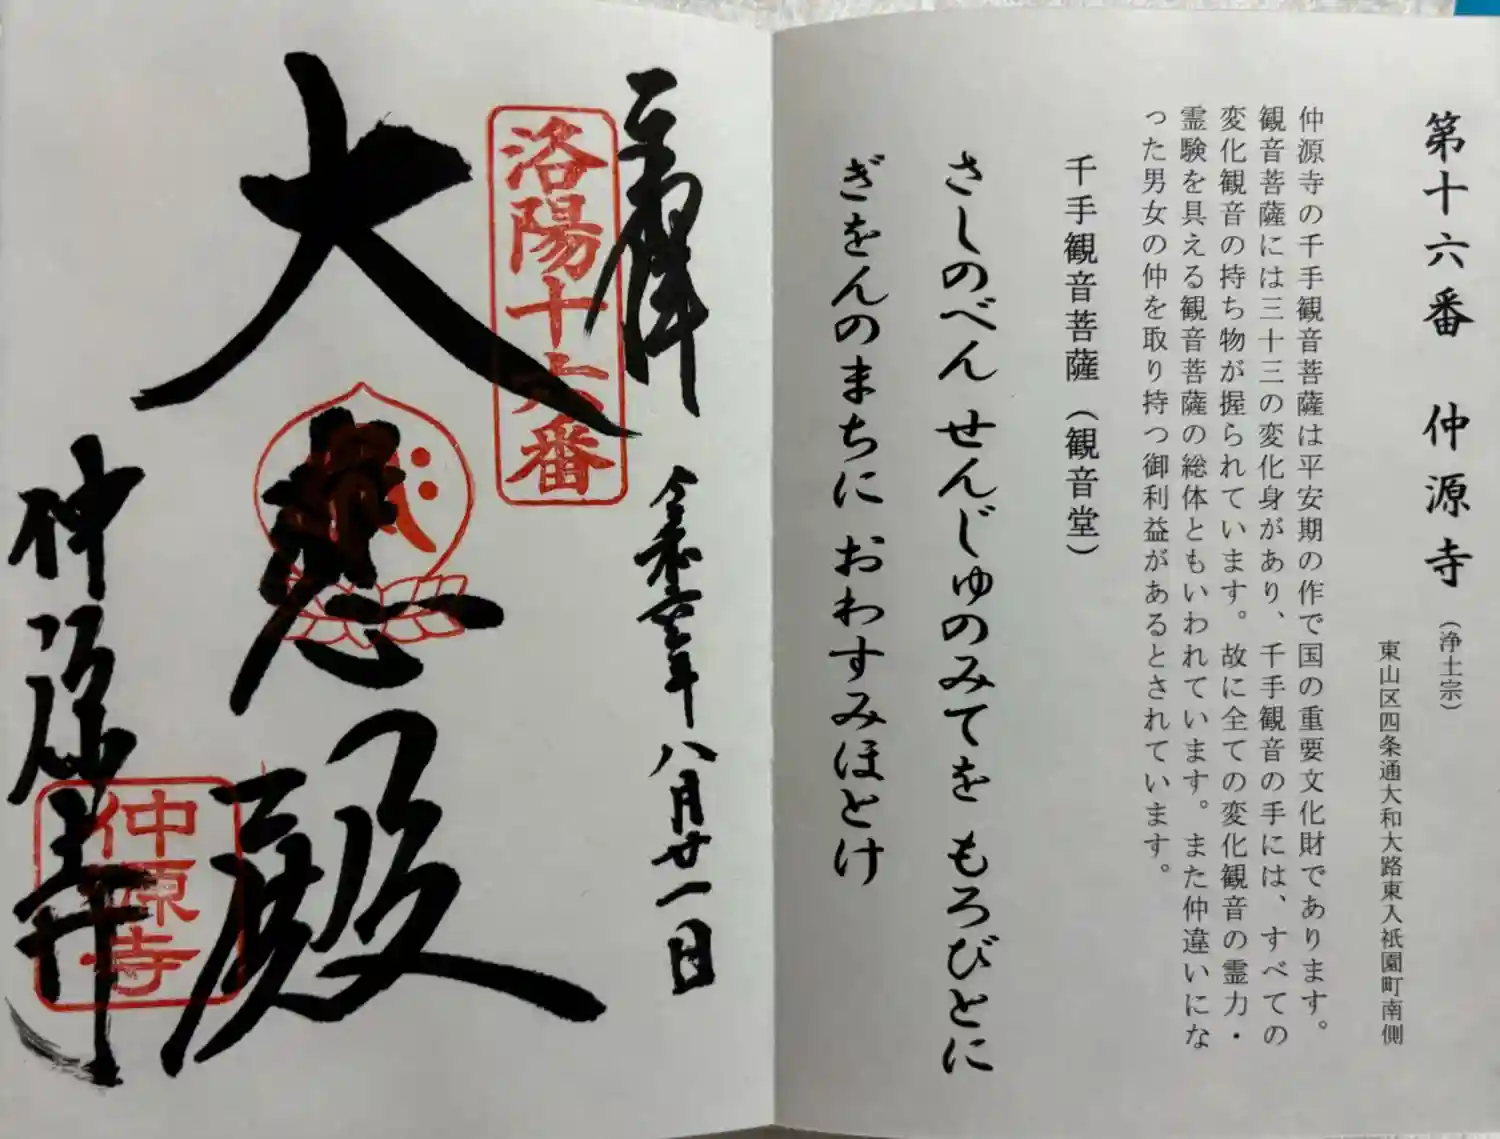 第十六番　仲源寺（浄土宗）
東山区四条通大和大路東入祇園町南側
仲源寺の千手観音菩薩は平安期の作で国の重要文化財であります。
観音菩薩には三十三の変化身があり、千手観音の手には、すべての
変化観音の持ち物が握られています。故に全ての変化観音の霊力・
霊験を具える観音菩薩の総体ともいわれています。また仲違いにな
った男女の仲を取り持つ御利益があるとされています。
千手観音菩薩（観音堂）
さしのべん せんじゅのみてを もろびとに
ぎをんのまちに おわすみほとけ
奉拝
令和六年八月廿一日
洛陽十六番
大悲殿
仲源寺
仲原寺